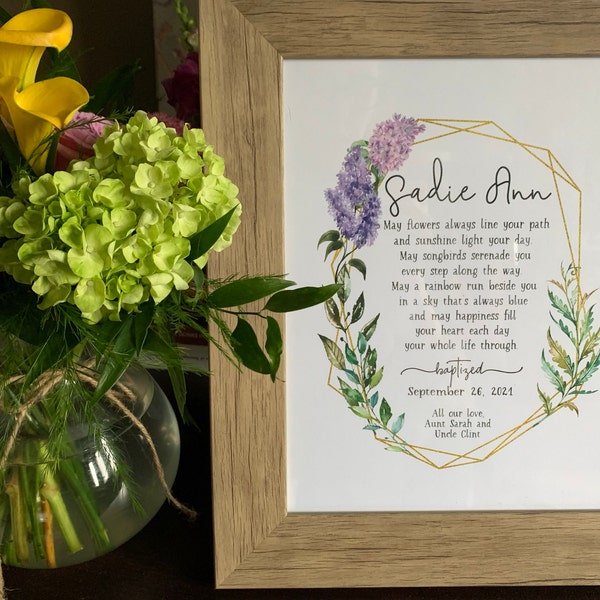 Sadie Ann
May flowers always line your path
and sunshine light your day.
May songbirds serenade you
every step along the way.
May a rainbow run beside you
in a sky that's always blue
and may happiness fill
your heart each day
your whole life through.
baptized
September 26, 2021
All our love,
Aunt Sarah and
Uncle Clint